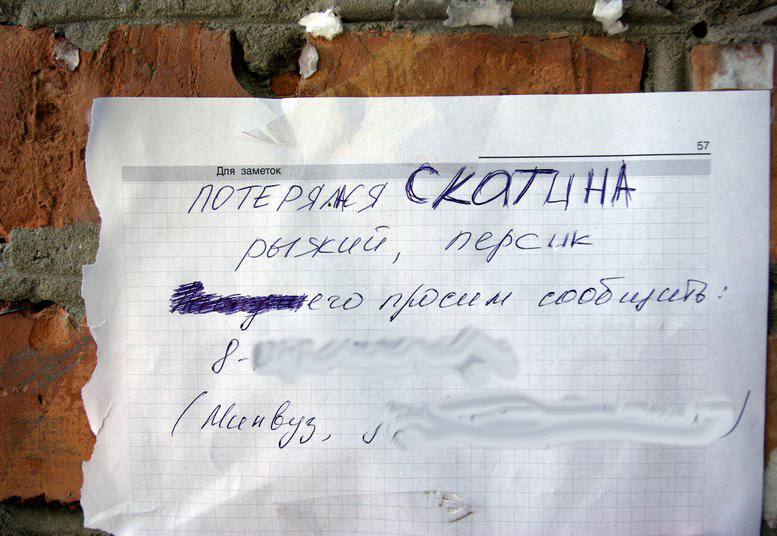 57
Для заметок
ПОТЕРЯЛСЯ СКАТИНА
рыжий, персик
его просим сообщить:
8-
(Минвуз,